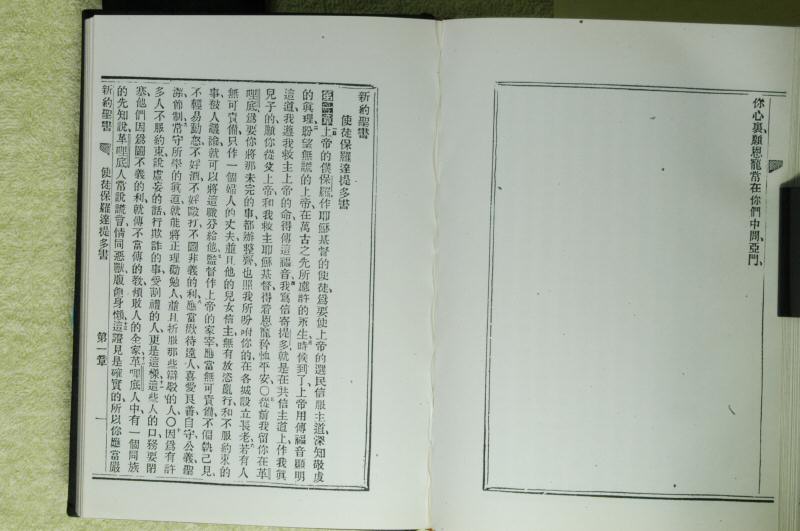 你心裏、願恩寵常在你們中間、亞門、
新約聖書
使徒保羅達提多書
第一章上帝的僕保羅、作耶穌基督的使徒、爲要使上帝的選民信服主道、深知敬虔
的眞理、盼望無謊的上帝、在萬古之先所應許的永生、時候到了、上帝用傳福音顯明
這道、我遵我救主上帝的命得傳這福音、我寫信寄提多、就是在共信主道上作我眞
兒子的、願你從父上帝、和我救主耶穌基督、得着恩寵矜恤平安、〇從前我留你在革
哩底、爲要你將那未完的事都辦整齊、也照我所吩咐你的在各城設立長老、若有人
無可責備、只作一個婦人的丈夫、並且他的兒女信主、無有放恣亂行、和不服約束的
事被人議論、就可以將這職分給他、監督作上帝的家宰、應當無可責備、不偏執己見、
不輕易動怒、不好酒、不好毆打、不圖非義的利、應當欵待遠人、喜愛良善、自守、公義、聖
潔、節制、常守所學的眞道、就能將正理勸勉人、並且折服那些辯駁的人、〇因爲有許
多人不服約束、說虛妄的話、行欺詐的事、受割禮的人、更是這樣、這些人的口、務要閉
塞、他們因爲圖不義的利、就傳不當傳的教、傾敗人的全家、革哩底人中有一個同族
的先知說、革哩底人常說謊言、情同惡獸、腹飽身懶、這證見是確實的、所以你應當嚴
新約聖書 使徒保羅達提多書 第一章 一